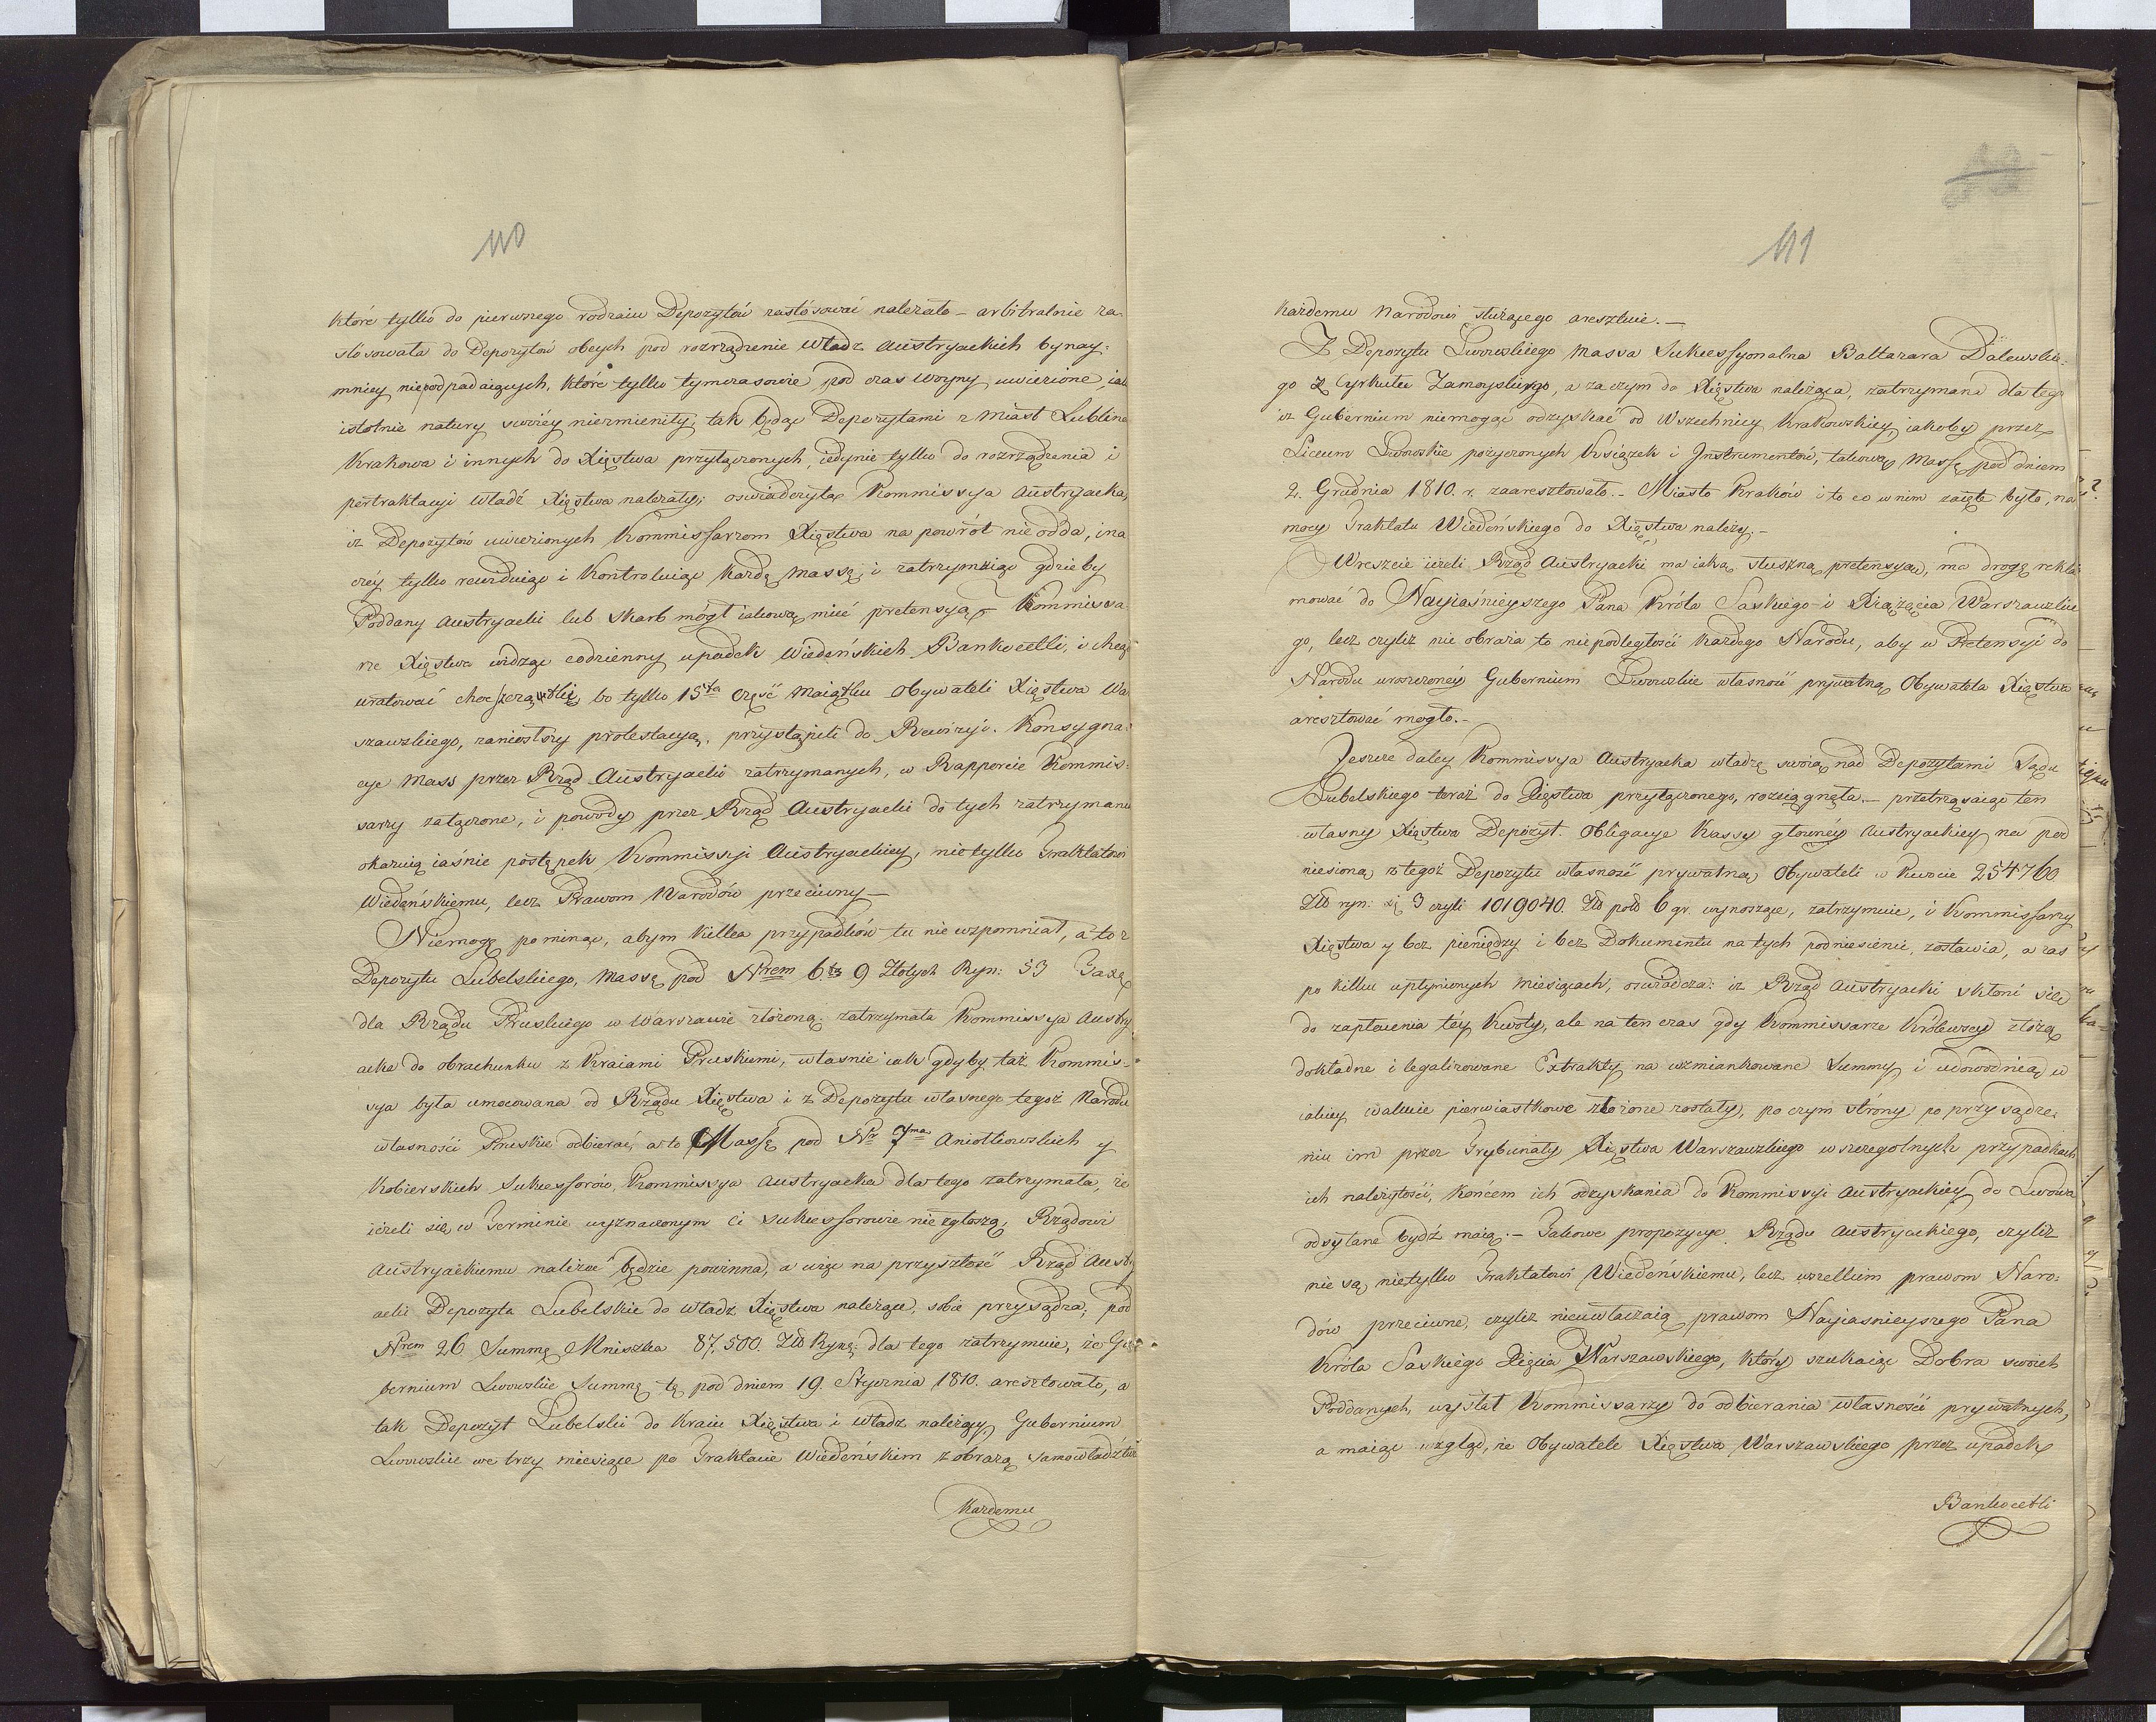 110
które tylko do pierwszego rodzaiu Depozytów zastósować należało – arbitralnie za-
stósowała do Depozytów obcych pod rozrządzenie Władz Austryackich bynay-
mniey niepodpadaiących, które tylko tymczasowie pod czas woyny uwiezione, iak
istotnie natury swoiéy niezmieniły, tak będąc Depozytami z Miast Lublina
Krakowa i innych do Xięstwa przyłączonych, iedynie tylko do rozrządzenia i
pertraktacyi Władz Xięstwa należały; oswiadczyła Kommissya Austryacka,
iż Depozytów uwiezionych Kommissarzom Xięstwa na powrót nie odda, ina
czéy tylko rewiduiąc i Kontroluiąc Każdę Massę, i zatrzymuiąc gdzieby
Poddany Austryacki lub Skarb mógł iakową mieć pretensyą – Kommissa
rze Xięstwa widząc codzienny upadek Wiedeńskich Bankocetli, i chcąc
uratować choć szczątki, bo tylko 15ta część Maiątku Obywateli Xięstwa Wa
szawskiego, zaniosłszy protestacyą, przystąpili do Rewizyi. Konsygna-
cye Mass przez Rząd Austryacki zatrzymanych, w Rapporcie Kommis-
sarzy załączone, i powody przez Rząd Austryacki do tych zatrzymania
okazuią iaśnie postępek Kommissyi Austryackiey, nie tylko Traktatowi
Wiedeńskiemu, lecz Prawom Narodów przeciwny –
Niemogę pominąć, abym kilka przypadków tu nie wspomniał, a to z
Depozytu Lubelskiego, Massę pod Nrem 6. to 9 Złotych Ryn: 53 Taxę
dla Rządu Pruskiego w Warszawie złożoną, zatrzymała Kommissya Austry
acka do obrachunku z Kraiami Pruskiemi, własnie iak gdyby taż Kommis-
sya była umocowana od Rządu Xięstwa i z Depozytu własnego tegoż Narodu
własności Pruskie odbierać, a to Massę pod Nr 7ma Aniołkowskich y
Kobierskich Sukcessorów, Kommissya Austryacka dla tego zatrzymała, że
ieżeli się w Terminie wyznaczonym ci Sukcessorowie nie zgłoszą, Rządowi
Austryackiemu należeć będzie powinna, a więc na przyszłość Rząd Austry
acki Depozyta Lubelskie do Władz Xięstwa należące, sobie przysądza; pod
Nrem 26 Summę Mniszka 87,500. Zło Ryńs: dla tego zatrzymuie, że Gu-
bernium Lwowskie Summę tę pod dniem 19. Stycznia 1810. aresztowało, a
tak Depozyt Lubelski do Kraiu Xięstwa i Władz należący, Gubernium
Lwowskie we trzy miesiące po Traktacie Wiedeńskim z obrazą samowładztwa
Każdemu
111
każdemu Narodowi służącego aresztuie. –
Z Depozytu Lwowskiego Massa Sukcessyonalna Baltazara Dalewskie-
go z Cyrkułu Zamoyskiego, a zaczym do Xięstwa należąca, zatrzymana dla tego
iż Gubernium niemogąc odzyskać od Wszechnicy Krakowskiey, iakoby przez
Liceum Lwowskie pożyczonych Książek i Instrumentów, takową Massę pod dniem
2. Grudnia 1810. r. zaaresztowało. – Miasto Kraków i to co w nim zaięte było, na
mocy Traktatu Wiedeńskiego do Xięstwa należy. –
Wreszcie ieżeli Rząd Austryacki ma iaką słuszną pretensyą, ma drogę rekla
mować do Nayiaśnieyszego Pana Króla Saskiego i Xiążęcia Warszawskie
go, lecz czyliż nie obraża to niepodległości każdego Narodu, aby w Pretensyi do
Narodu uroszczonéy Gubernium Lwowskie własność prywatną Obywatela Xięstwa
aresztować mogło. –
Jeszcze daley Kommissya Austryacka władzę swoią nad Depozytami Sądu
Lubelskiego teraz do Xięstwa przyłączonego, rozciągnęła. – przetrząsaiąc ten
własny Xięstwa Depozyt. Obligacye Kassy główney Austryackiey na pod
niesioną z tegoż Depozytu własność prywatną Obywateli w Kwocie 254760
Zło ryn: xę 3 czyli 1019040. Zło pols 6 gr. wynoszące, zatrzymuie, i Kommissarzy
Xięstwa y bez pieniędzy i bez Dokumentu na tych podniesienie, zostawia, a zaś
po kilku upłynionych miesiącach, oswiadcza: iż Rząd Austryacki skłoni się
do zapłacenia téy Kwoty, ale na ten czas gdy Kommissarze Królewscy złożą
dokładne i legalizowane Extrakty na wzmiankowane Summy i udowodnią w
iakiey walucie pierwiastkowe złożone zostały, po czym strony po przysądze-
niu im przez Trybunały Xięstwa Warszawskiego w szczegolnych przypadkach
ich należytości, końcem ich odzyskania do Kommissyi Austryackiey do Lwowa
odsyłane bydź maią. – Takowe propozycye Rządu Austryackiego, czyliż
nie są nietylko Traktatowi Wiedeńskiemu, lecz wszelkim prawom Naro-
dów przeciwne, czyliż nieuwłaczaią prawom Nayiasnieyszego Pana
Króla Saskiego Xięcia Warszawskiego, który szukaiąc Dobra swoich
Poddanych, wysłał Kommissarzy do odbierania własności prywatnych,
a maiąc wzgląd, że Obywatele Xięstwa Warszawskiego przez upadek
Bankocetli